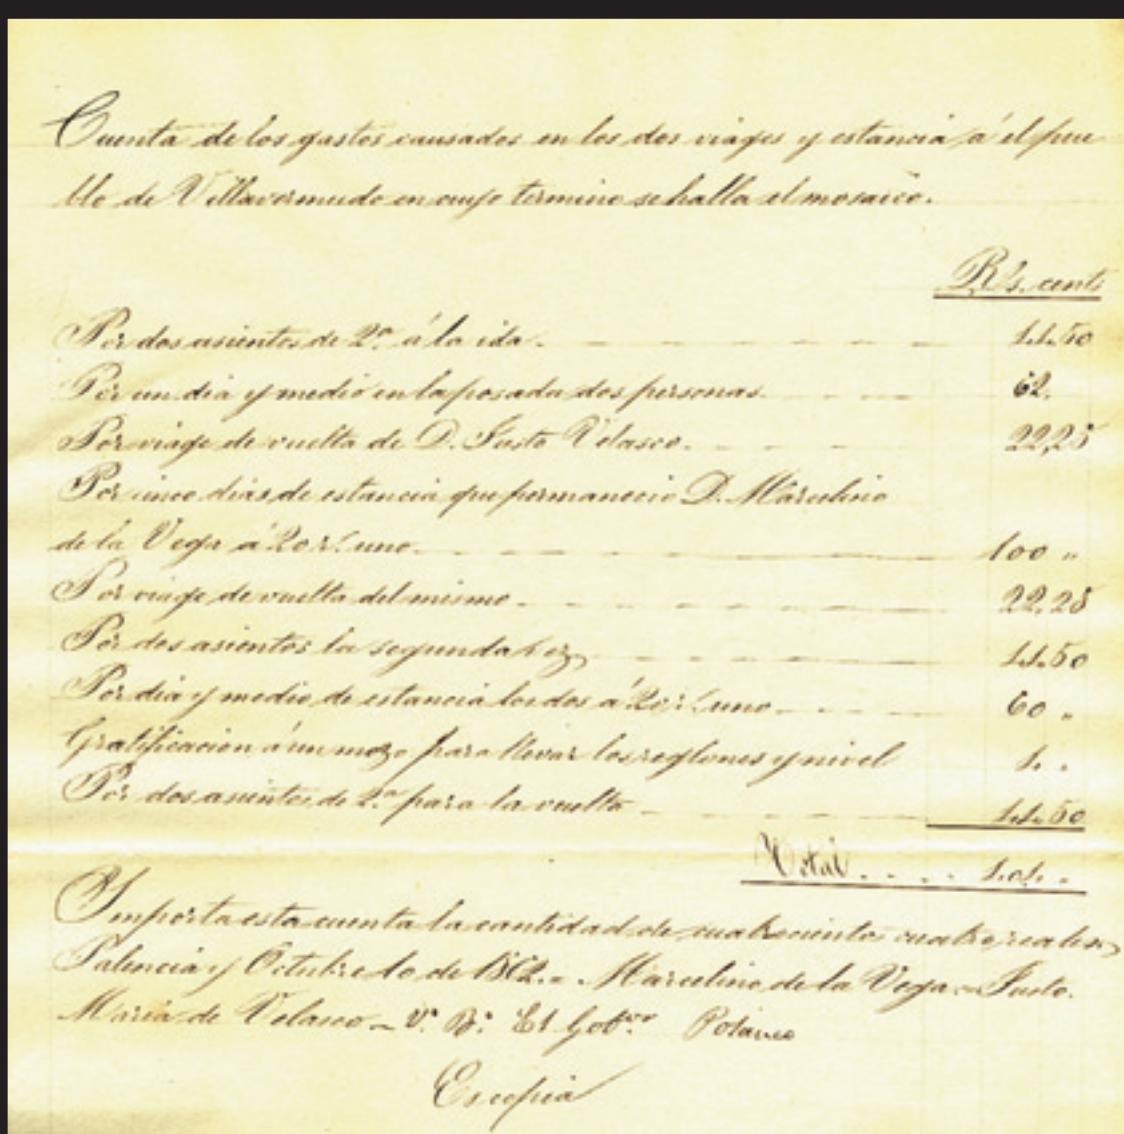 Cuenta de los gastos causados en los dos viages y estancia á el pue
blo de Villavermudo en cuyo termino se halla el mosaico.
Rs. cents
Por dos asientos de 2ª. á la ida. 44.50
Por un dia y medio en la posada dos personas. 62.
Por viage de vuelta de D. Justo Velasco. 22,25
Por cinco dias de estancia que permanecio D. Marcelino
de la Vega á 20 rs. uno. 100 "
Por viage de vuelta del mismo. 22,25
Por dos asientos la segunda vez, 44.50
Por dia y medio de estancia los dos á 20 rs. uno. 60 "
Gratificacion á un mozo para llevar los reglones y nivel 4. "
Por dos asientos de 2ª. para la vuelta 44.50
Total.... 404. "
Importa esta cuenta la cantidad de cuatrocientos cuatro reales,
Palencia y Octubre 10 de 1862. = Marcelino de la Vega = Justo.
Maria de Velasco = Vº. Bº. El Gobor. Polanco
Es copia